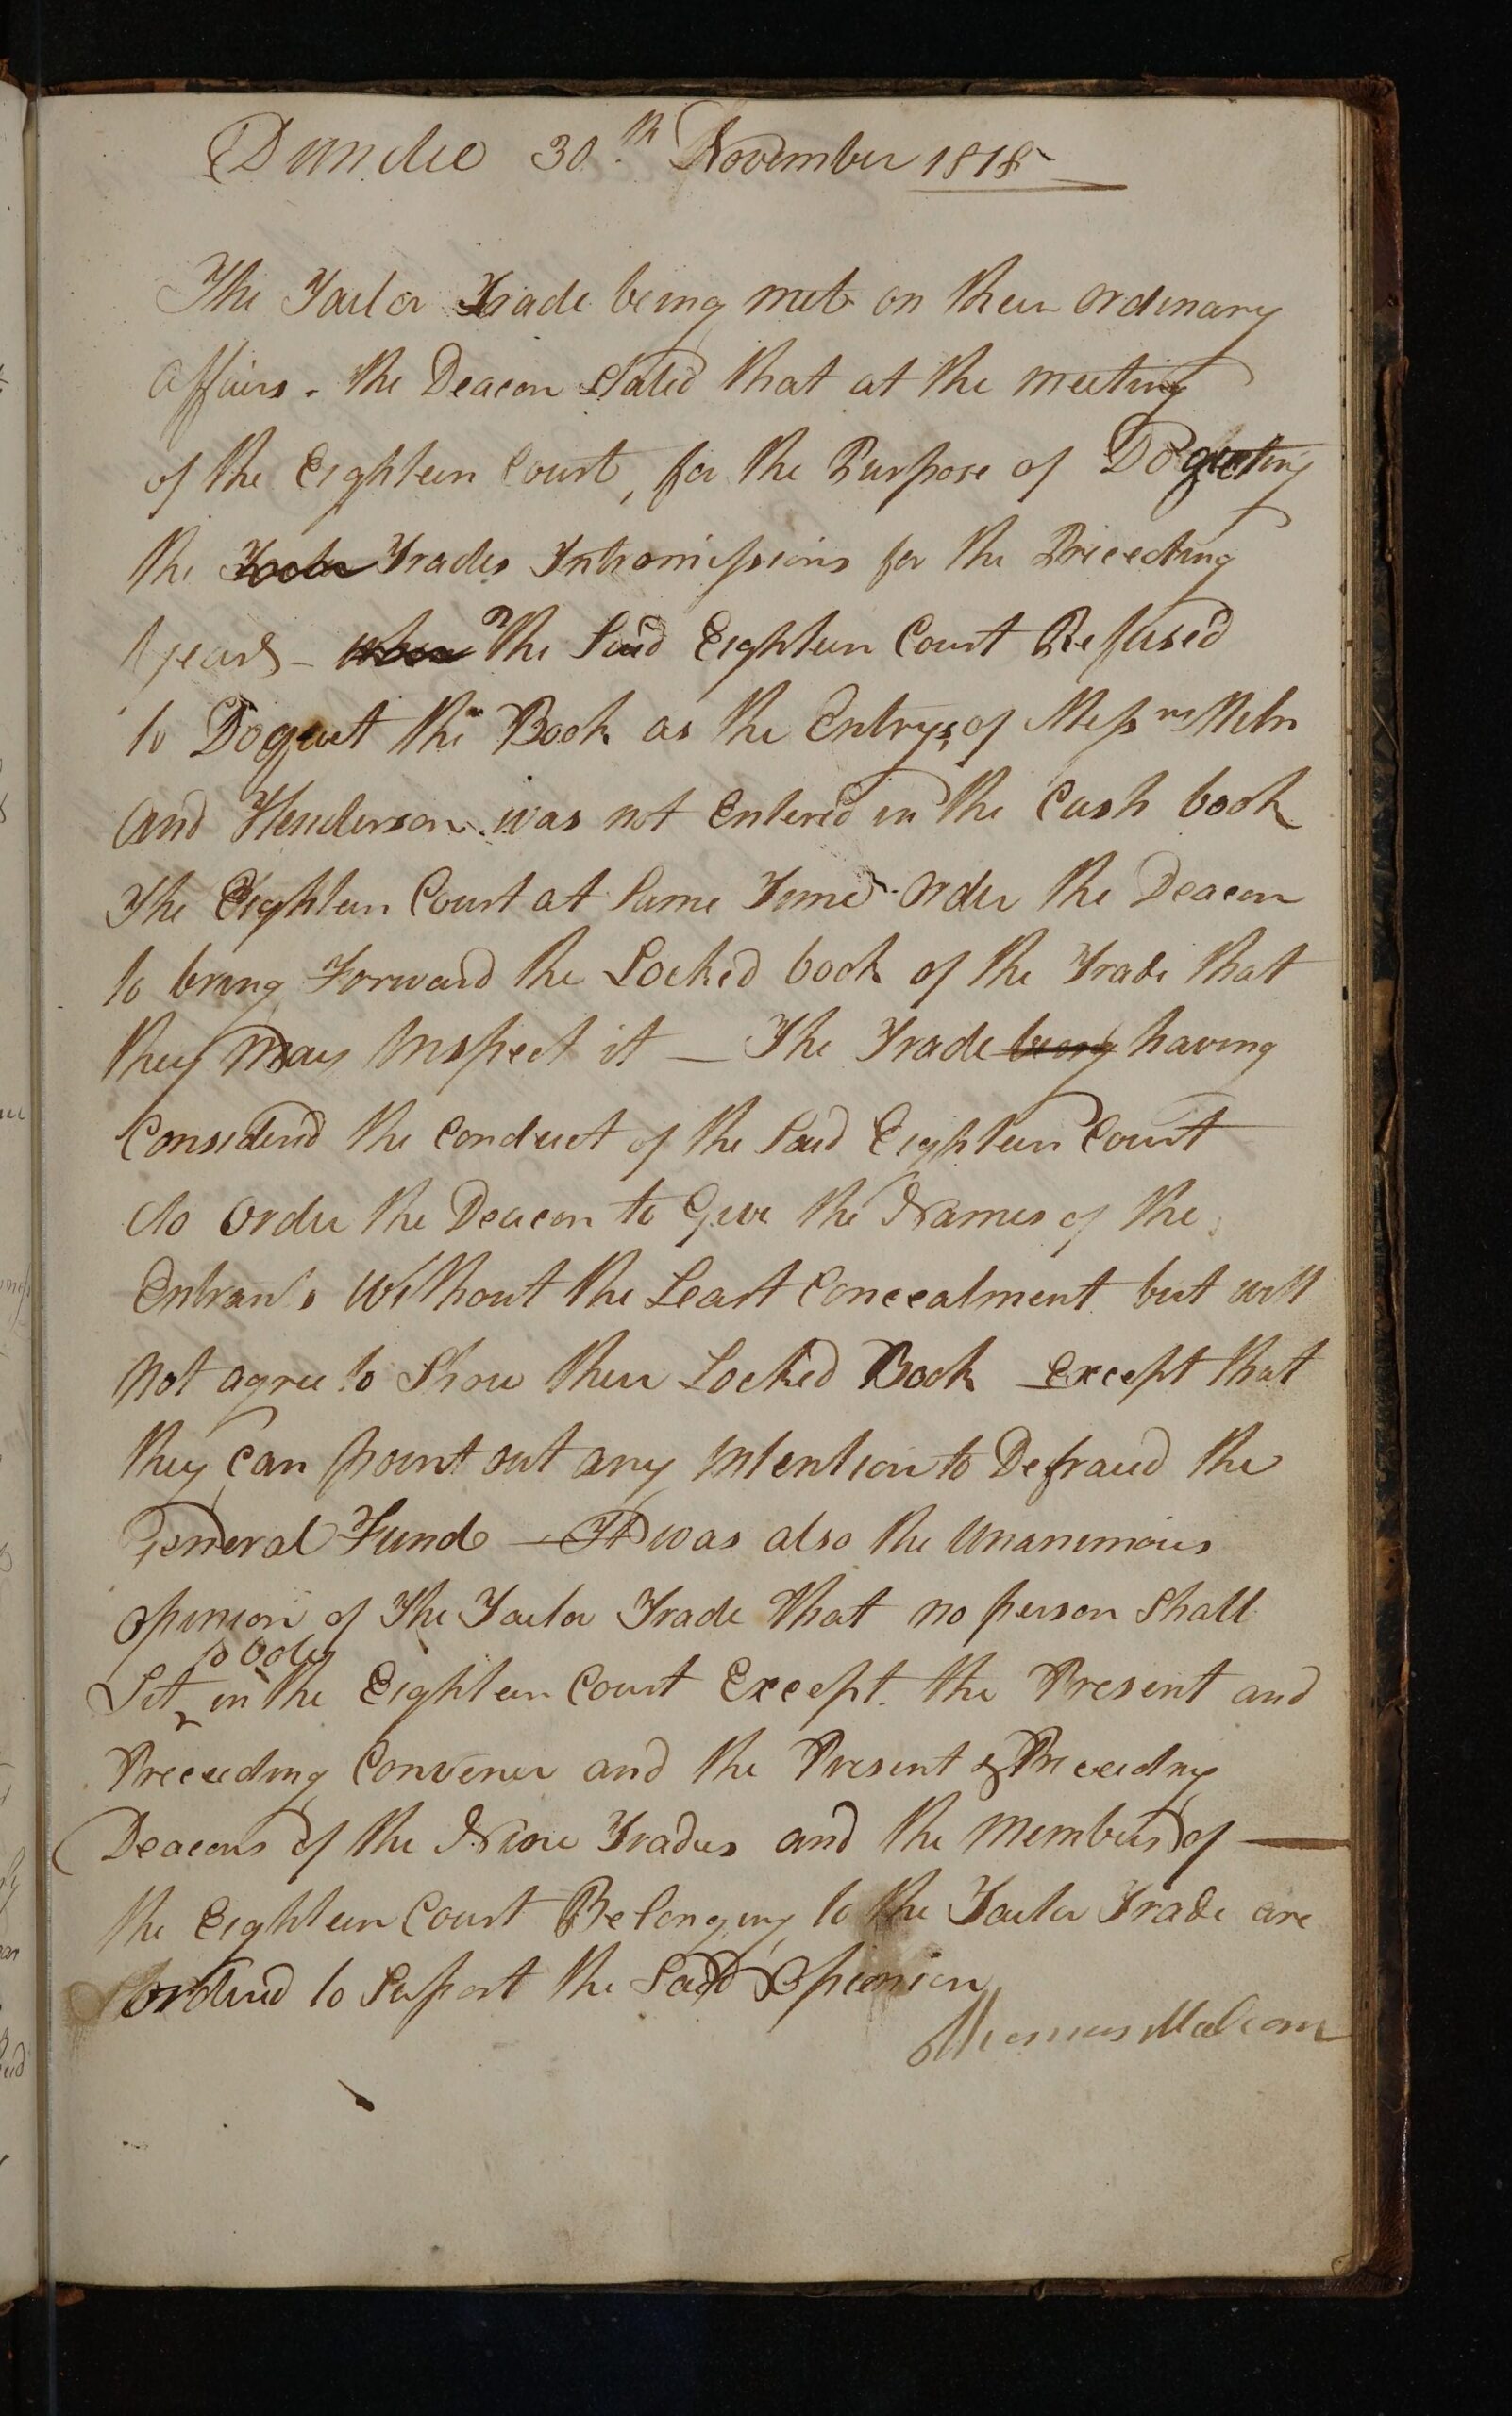 Dundee 30th November 1818
The Tailor Trade being met on their ordinary
affairs - the Deacon Stated that at the meeting
of the Eighteen Court, for the Purpose of Doqueting
the Trades Intromissions for the Preceeding
years - the Said Eighteen Court Refused
to Doquet the Book as the Entrys of Messrs Miln
and Henderson was not Entered in the Cash book
The Eighteen Court at Same Time order the Deacon
to bring Forward the Locked book of the Trade that
they may Inspect it — The Trade being having
Considered the Conduct of the Said Eighteen Court
do order the Deacon to Give the Names of the
Entrants Without the Least Concealment but will
not agree to Show their Locked Book Except that
they can point out any Intention to Defraud the
General Fund — It was also the Unanimous
opinion of The Tailor Trade that no person Shall
to vote
Sit in the Eighteen Court Except the Present and
Preceeding Convener and the Present & Preceeding
Deacons of the Nine Trades and the members of —
the Eighteen Court Belonging to the Tailor Trade are
ordered to Suport the Said Opinion
Thomas Malcom